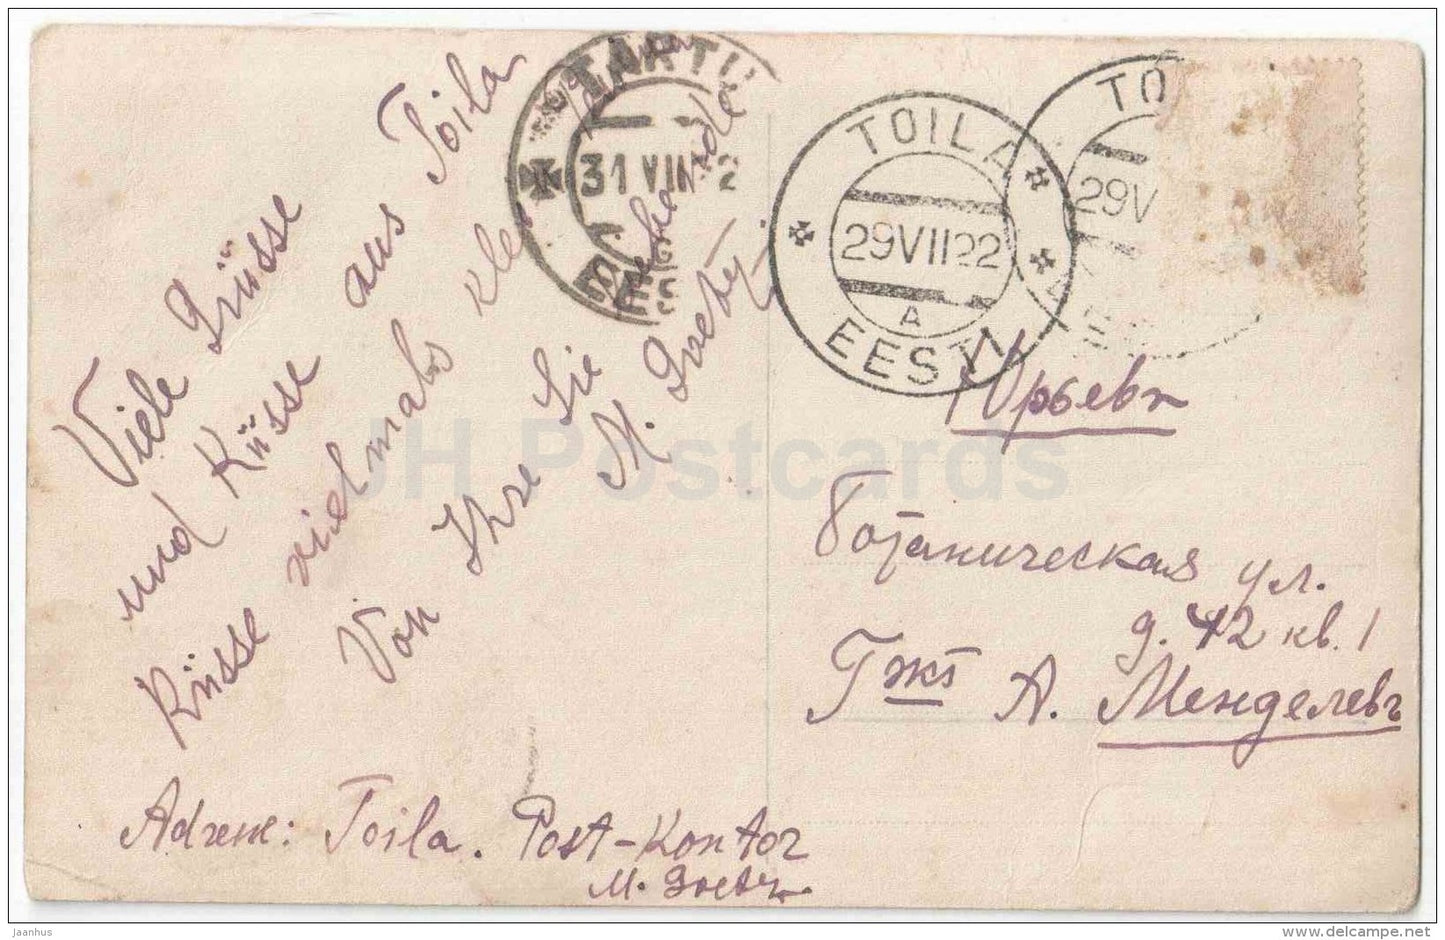 Viele Grüsse
und Küsse aus Toila
Küsse vielmals
Von Ihre Sie
M. Goetz
Adresse: Toila. Post-Kontor
M. Goetz
TARTU
31 VII 2
EESTI
TOILA
29 VII 22
A
EESTI
TO
29 V
Юрьевъ
Ботаническая ул.
д. 42 кв. 1
Гжѣ А. Менделевъ
JH Postcards
jaanhus
delcampe.net